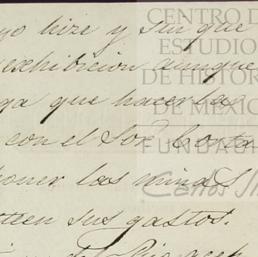 yo hize y sin que
exhibicion aunque
ga que hacerla
con el Sor. Corta
poner las minas
sus gastos.
CENTRO D
ESTUDIO
DE HISTOR
DE MEXIC
FUNDACI
Carlos Sl